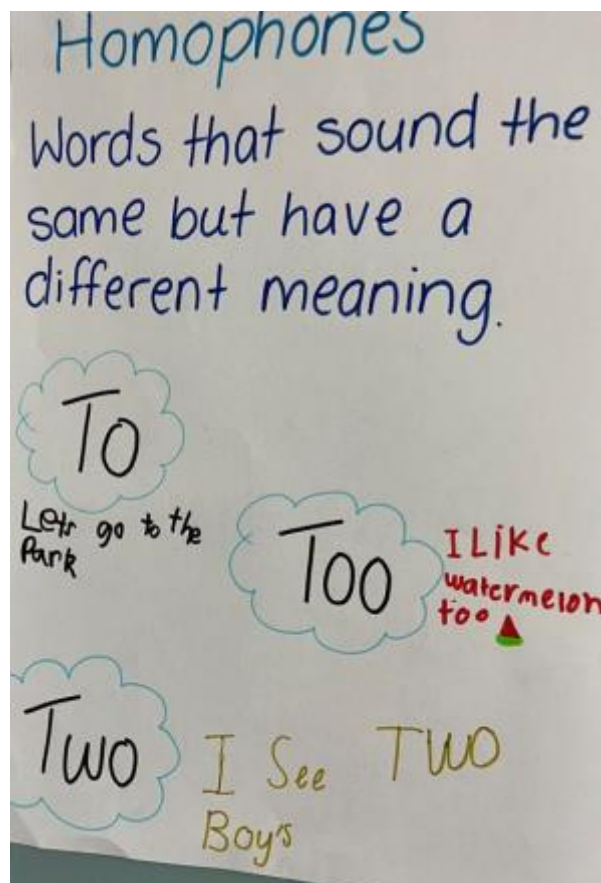 Homophones
Words that sound the
same but have a
different meaning.
To
Lets go to the
Park
Too
I Like
watermelon
too
Two
I See TWO
Boy's